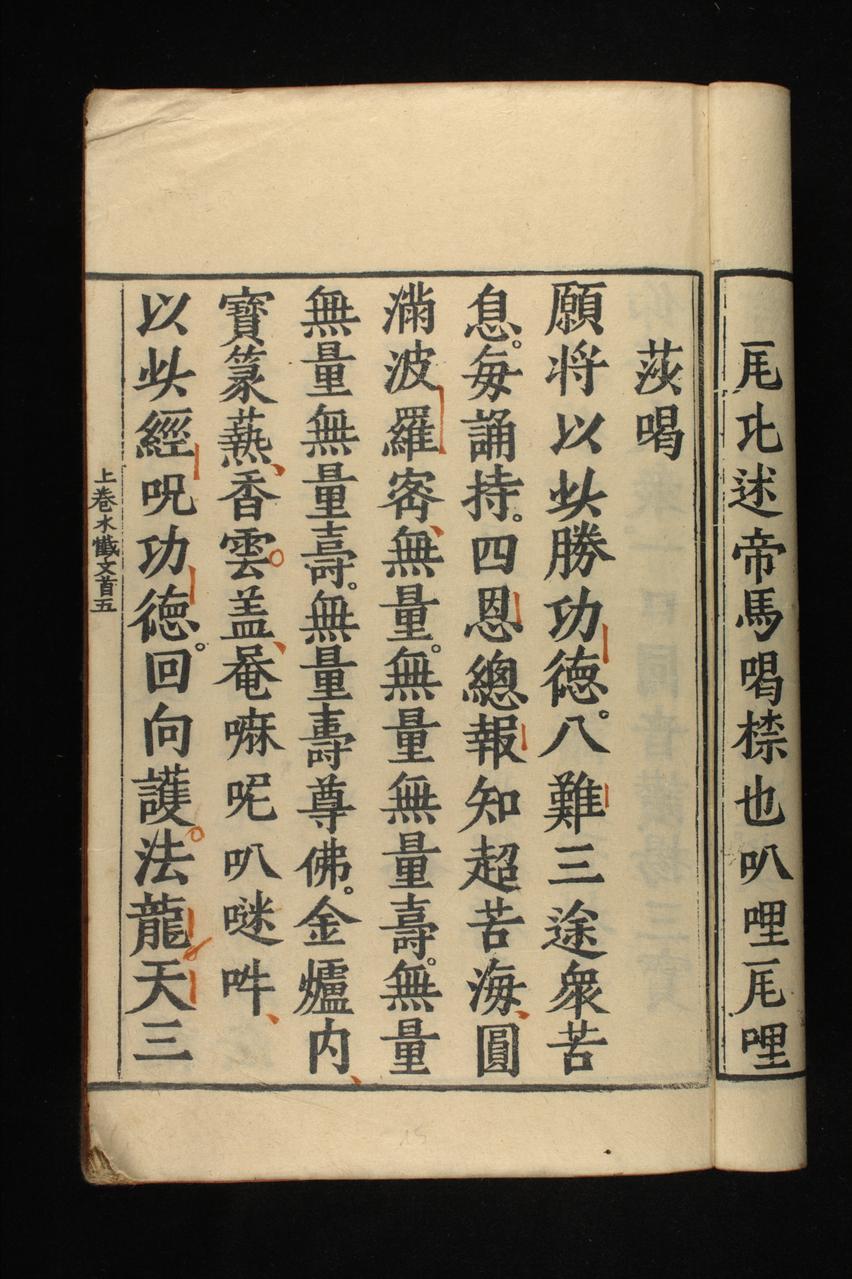 𠂆尾北述帝馬喝捺也叭哩𠂆尾哩
莎喝
願将以此勝功德。八難三途衆苦
息。每誦持。四恩總報知超苦海圓
滿波羅宻無量。無量無量壽。無量
無量無量壽。無量壽尊佛。金爐内
寶篆爇香雲盖菴嘛呢叭㖷吽
以此經呪功德。回向護法龍天三
上卷水懺文首五